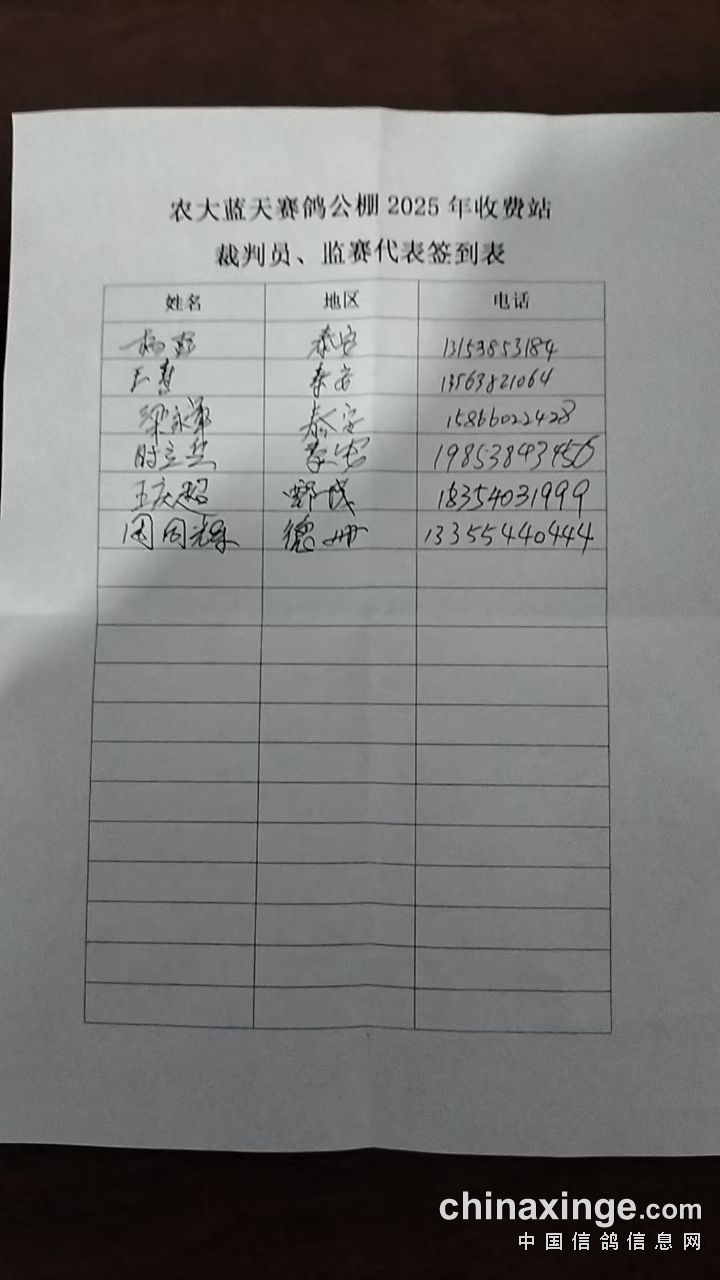 农大蓝天赛鸽公棚2025年收费站
裁判员、监赛代表签到表
姓名 地区 电话
杨 泰安 13153853184
王 泰安 13563821064
梁永 泰安 15866022428
时立 泰安 19853843456
王庆超 鄄城 18354031999
周同辉 德州 13355440444
chinaxinge.com
中国信鸽信息网